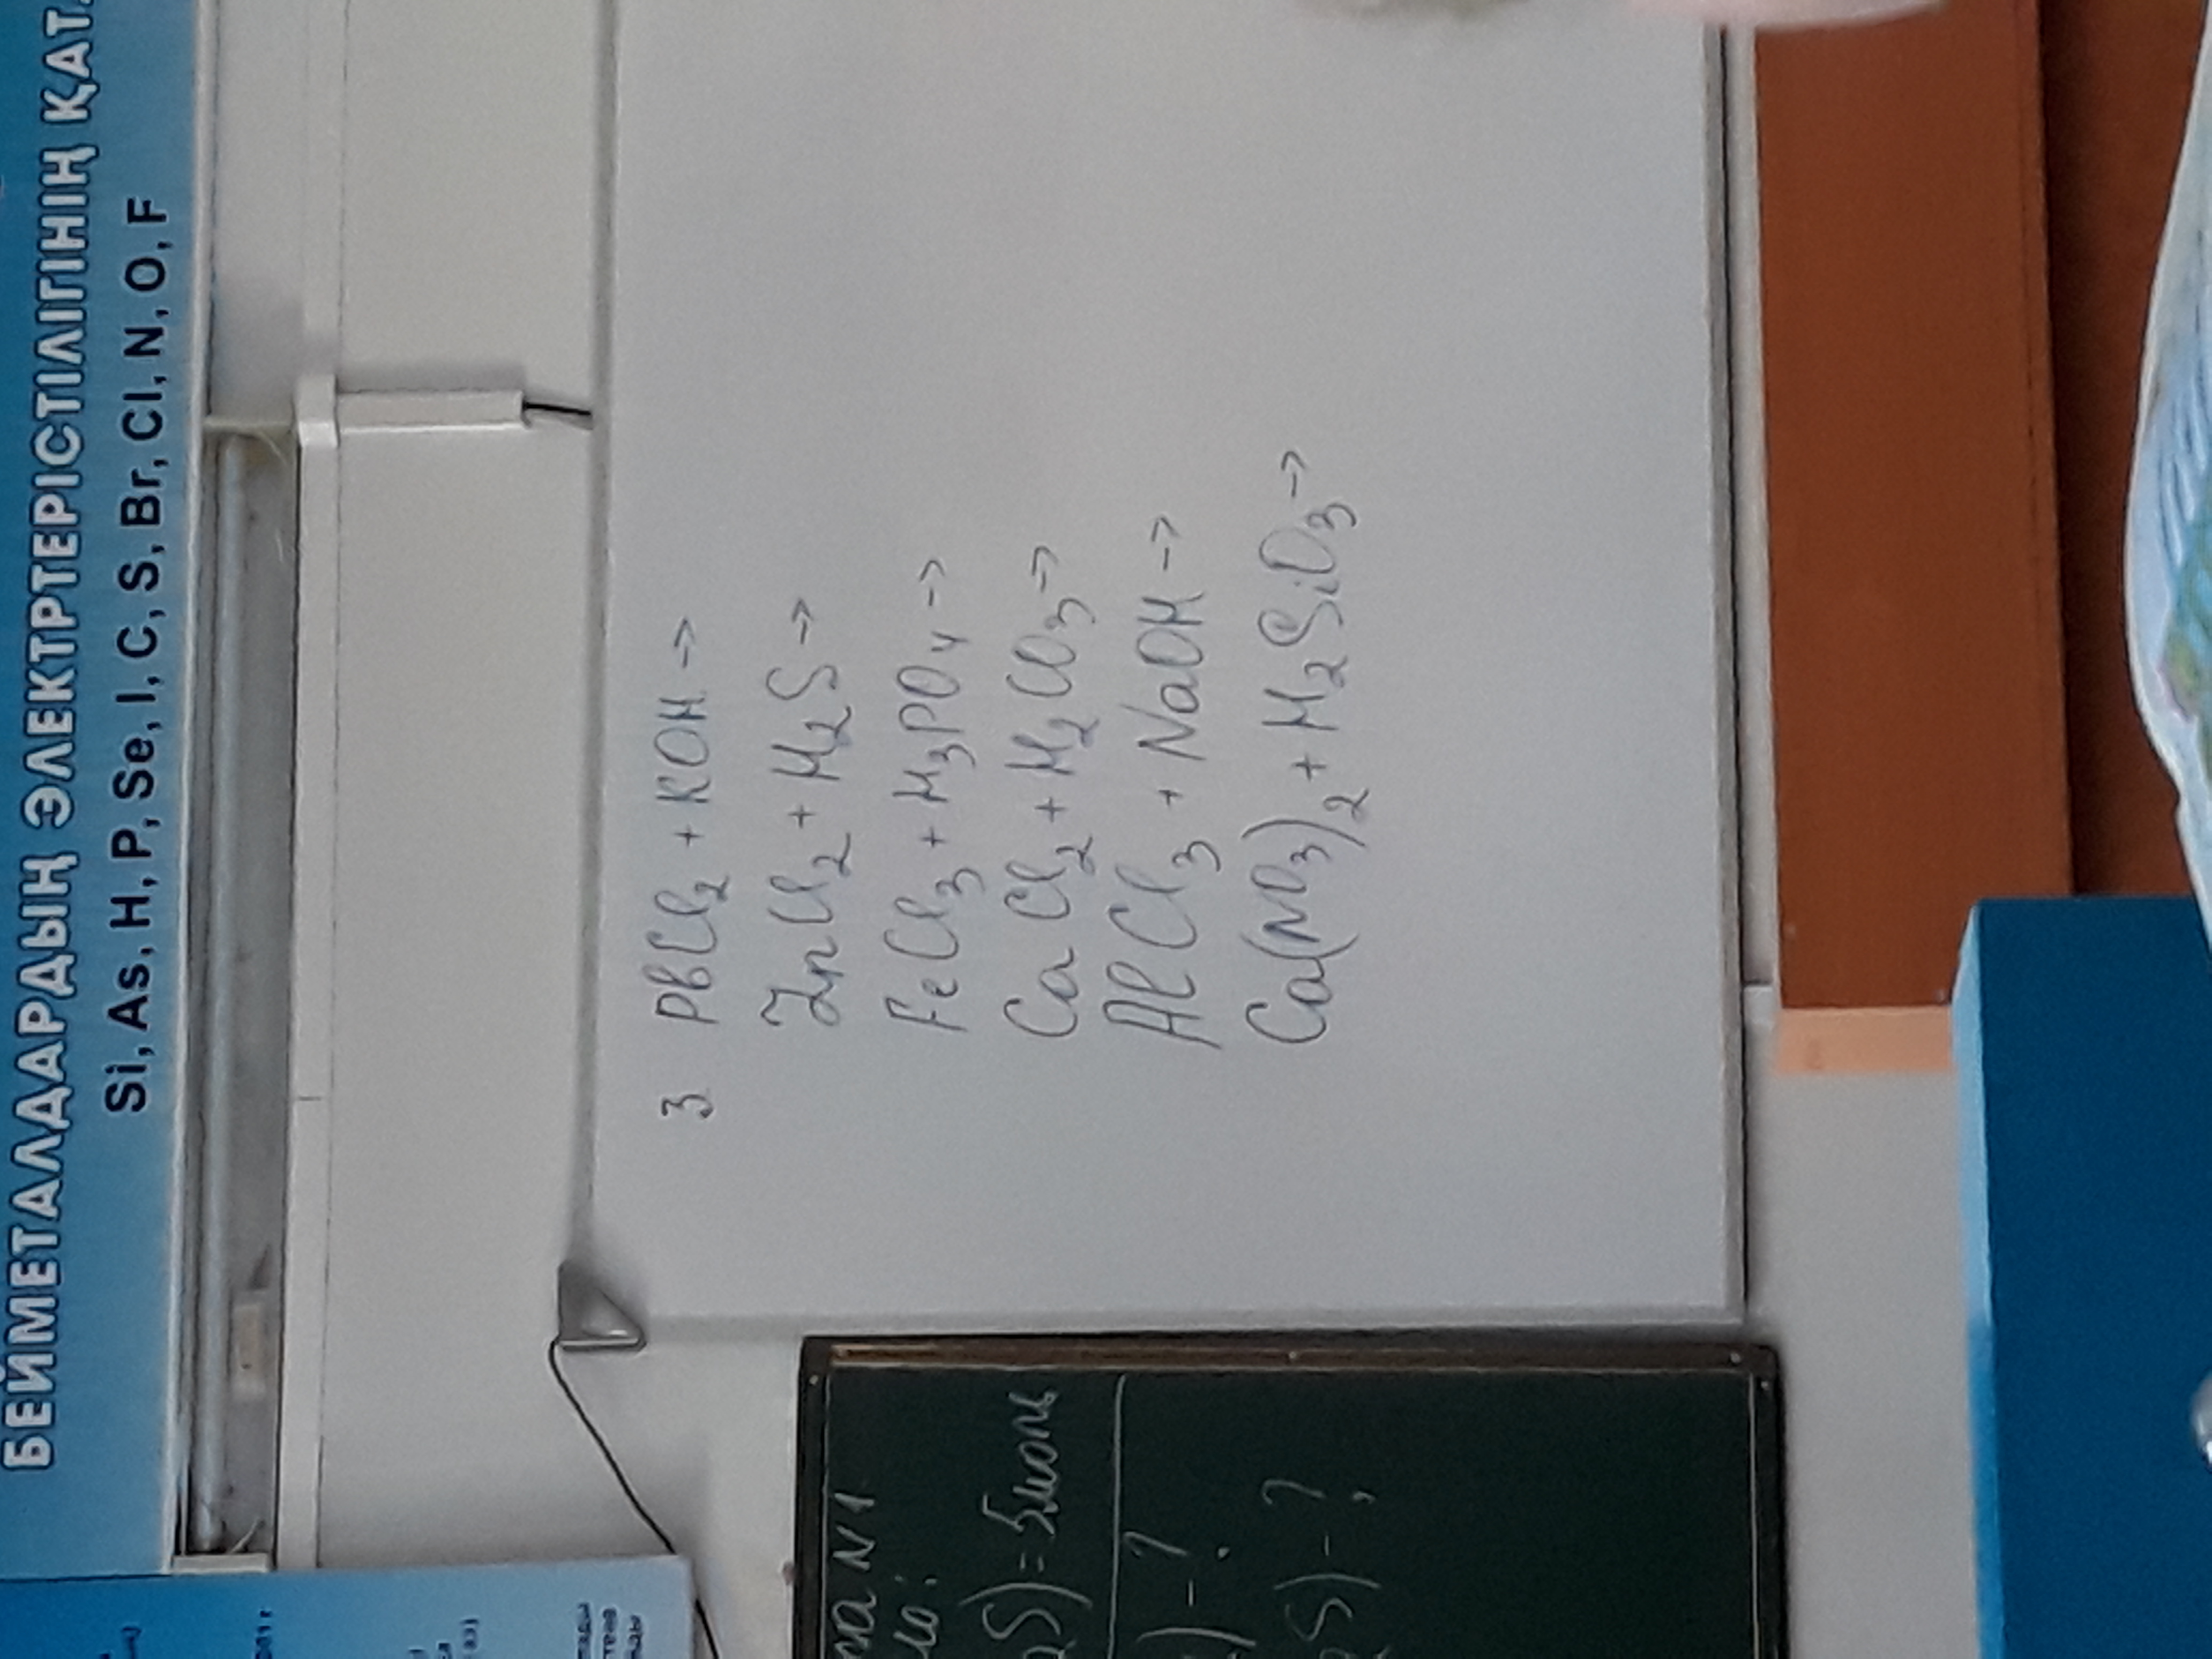 БЕЙМЕТАЛДАРДЫҢ ЭЛЕКТРТЕРІСТІЛІГІНІҢ ҚАТ
Si, As, H, P, Se, I, C, S, Br, Cl, N, O, F
3 PbCl₂ + KOH →
ZnCl₂ + H₂S →
FeCl₃ + H₃PO₄ →
CaCl₂ + H₂CO₃ →
AlCl₃ + NaOH →
Ca(NO₃)₂ + H₂SiO₃ →
ча N1
S) = 5моль
) - ?
S) - ?